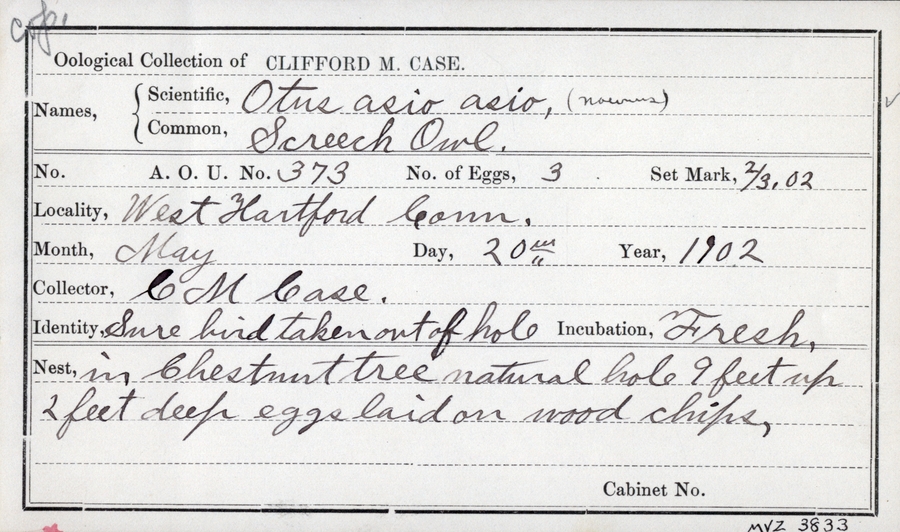 Oological Collection of CLIFFORD M. CASE.
Names, { Scientific, Otus asio asio,
Common, Screech Owl.
No. A. O. U. No. 373 No. of Eggs, 3 Set Mark, 2/3, 02
Locality, West Hartford Conn.
Month, May Day, 20 Year, 1902
Collector, C M Case.
Identity, Sure bird taken out of hole Incubation, Fresh,
Nest, in Chestnut tree natural hole 9 feet up
2 feet deep eggs laid on wood chips,
Cabinet No.
MVZ 3833